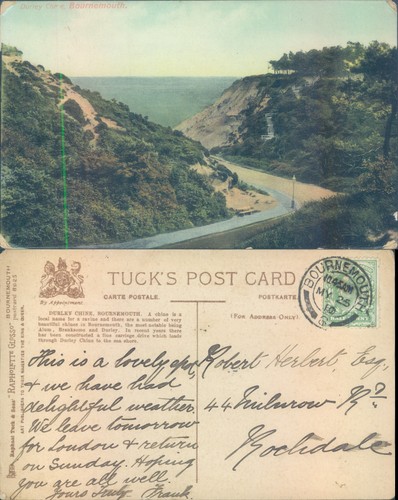 Durley Chine, Bournemouth.
TUCK'S POST CARD
By Appointment
CARTE POSTALE.
POSTKARTE.
(FOR ADDRESS ONLY)
DURLEY CHINE, BOURNEMOUTH. A chine is a
local name for a ravine and there are a number of very
beautiful chines in Bournemouth, the most notable being
Alum, Branksome and Durley. In recent years there
has been constructed a fine carriage drive which leads
through Durley Chine to the sea shore.
Raphael Tuck & Sons' "RAPHOTYPE"
BOURNEMOUTH
BOURNEMOUTH
MY 25
10
This is a lovely spot
& we have had
delightful weather.
We leave tomorrow
for London & return
on Sunday. Hoping
you are all well.
Yours truly Frank.
Robert Herbert, Esq,
44 Milnrow Rd
Rochdale